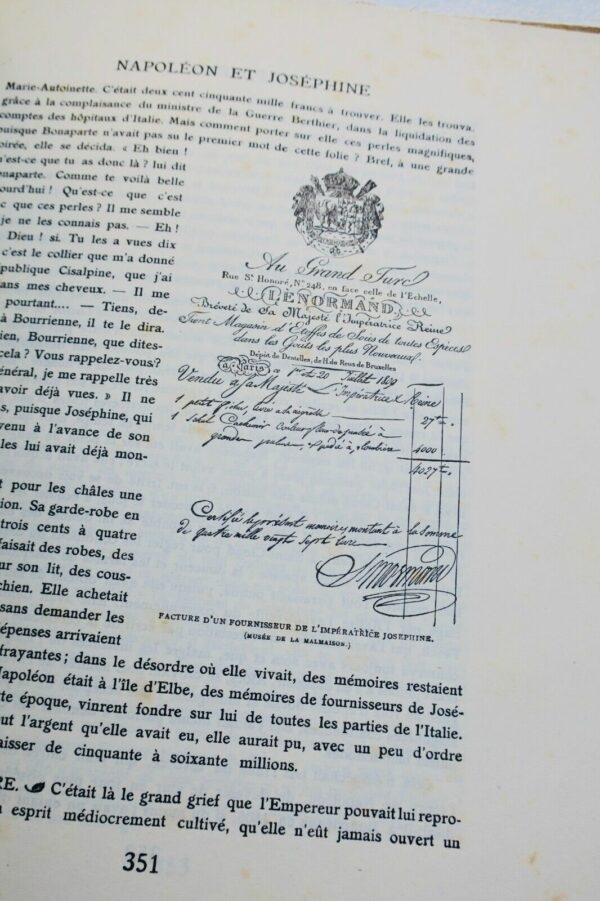 NAPOLÉON ET JOSÉPHINE
Marie-Antoinette. C'était deux cent cinquante mille francs à trouver. Elle les trouva.
grâce à la complaisance du ministre de la Guerre Berthier, dans la liquidation des
comptes des hôpitaux d'Italie. Mais comment porter sur elle ces perles magnifiques,
puisque Bonaparte n'avait pas su le premier mot de cette folie ? Bref, à une grande
soirée, elle se décida. « Eh bien !
qu'est-ce que tu as donc là ? lui dit
Bonaparte. Comme te voilà belle
ourd'hui ! Qu'est-ce que c'est
c que ces perles ? Il me semble
je ne les connais pas. — Eh !
Dieu ! si. Tu les a vues dix
c'est le collier que m'a donné
publique Cisalpine, que j'ai
ans mes cheveux. — Il me
pourtant.... — Tiens, de-
à Bourrienne, il te le dira.
ien, Bourrienne, que dites-
cela ? Vous rappelez-vous ?
énéral, je me rappelle très
avoir déjà vues. » Il ne
s, puisque Joséphine, qui
venu à l'avance de son
les lui avait déjà mon-
t pour les châles une
ion. Sa garde-robe en
trois cents à quatre
faisait des robes, des
ur son lit, des cous-
chien. Elle achetait
sans demander les
épenses arrivaient
Au Grand Turc
Rue St Honoré, No 248, en face celle de l'Echelle,
LENORMAND,
Bréveté de Sa Majesté l'Impératrice Reine
Tient Magasin d'Etoffes de Soies de toutes Especes
dans les Goûts les plus Nouveaux.
Dépôt de Dentelles, de H. du Reus de Bruxelles
à Paris ce 1er et 20 Juillet 1809
Vendu a sa Majesté L'Impératrice & Reine
1 petit fichu, 27
1 Schal Cachemir couleur fleur de
grandes palmes, 4000
4027
Certifié le présent mémoire montant à la somme
de quatre mille vingt sept
Lenormand
FACTURE D'UN FOURNISSEUR DE L'IMPÉRATRICE JOSÉPHINE.
(MUSÉE DE LA MALMAISON.)
frayantes ; dans le désordre où elle vivait, des mémoires restaient
Napoléon était à l'île d'Elbe, des mémoires de fournisseurs de José-
te époque, vinrent fondre sur lui de toutes les parties de l'Italie.
out l'argent qu'elle avait eu, elle aurait pu, avec un peu d'ordre
aisser de cinquante à soixante millions.
RE. C'était là le grand grief que l'Empereur pouvait lui repro-
n esprit médiocrement cultivé, qu'elle n'eût jamais ouvert un
351